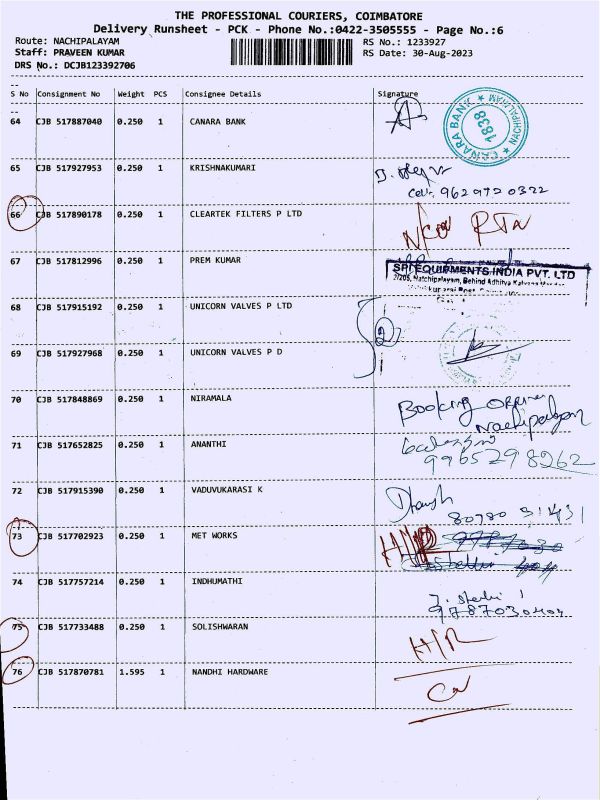 THE PROFESSIONAL COURIERS, COIMBATORE
Delivery Runsheet - PCK - Phone No.:0422-3505555 - Page No.:6
Route: NACHIPALAYAM
RS No.: 1233927
Staff: PRAVEEN KUMAR
RS Date: 30-Aug-2023
DRS No.: DCJB123392706
--
S No Consignment No Weight PCS Consignee Details Signature
--
64 CJB 517887040 0.250 1 CANARA BANK
CANARA BANK ★ NACHIPALAYAM ★ 1838
65 CJB 517927953 0.250 1 KRISHNAKUMARI
Cell: 9629720322
66 CJB 517890178 0.250 1 CLEARTEK FILTERS P LTD RTN
67 CJB 517812996 0.250 1 PREM KUMAR
SPJ EQUIPMENTS INDIA PVT. LTD
Natchipalayam, Behind Adhitya
68 CJB 517915192 0.250 1 UNICORN VALVES P LTD
2
69 CJB 517927968 0.250 1 UNICORN VALVES P D
70 CJB 517848869 0.250 1 NIRAMALA Booking
Nachipalayam
71 CJB 517652825 0.250 1 ANANTHI
9965298262
72 CJB 517915390 0.250 1 VADUVUKARASI K
80780 31431
73 CJB 517702923 0.250 1 MET WORKS
74 CJB 517757214 0.250 1 INDHUMATHI
9787030404
75 CJB 517733488 0.250 1 SOLISHWARAN H/R
76 CJB 517870781 1.595 1 NANDHI HARDWARE